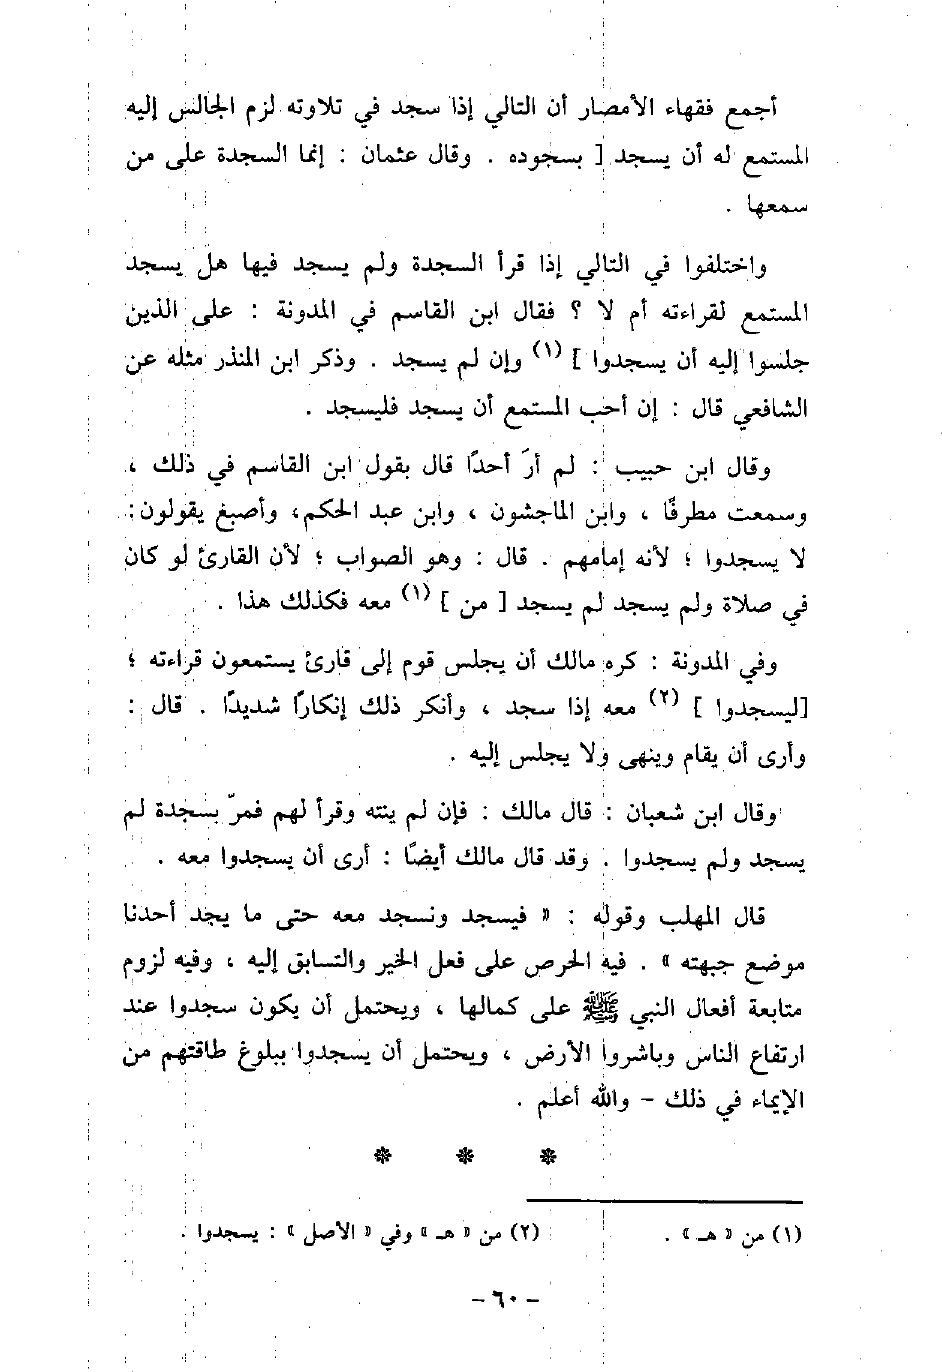 أجمع فقهاء الأمصار أن التالي إذا سجد في تلاوته لزم الجالس إليه
المستمع له أن يسجد [ بسجوده . وقال عثمان : إنما السجدة على من
سمعها .
واختلفوا في التالي إذا قرأ السجدة ولم يسجد فيها هل يسجد
المستمع لقراءته أم لا ؟ فقال ابن القاسم في المدونة : على الذين
جلسوا إليه أن يسجدوا ] (١) وإن لم يسجد . وذكر ابن المنذر مثله عن
الشافعي قال : إن أحب المستمع أن يسجد فليسجد .
وقال ابن حبيب : لم أرَ أحدًا قال بقول ابن القاسم في ذلك ،
وسمعت مطرفًا ، وابن الماجشون ، وابن عبد الحكم، وأصبغ يقولون:
لا يسجدوا ؛ لأنه إمامهم . قال : وهو الصواب ؛ لأن القارئ لو كان
في صلاة ولم يسجد لم يسجد [ من ] (١) معه فكذلك هذا .
وفي المدونة : كره مالك أن يجلس قوم إلى قارئ يستمعون قراءته ؛
[ليسجدوا ] (٢) معه إذا سجد ، وأنكر ذلك إنكارًا شديدًا . قال :
وأرى أن يقام وينهى ولا يجلس إليه .
وقال ابن شعبان : قال مالك : فإن لم ينته وقرأ لهم فمرّ بسجدة لم
يسجد ولم يسجدوا . وقد قال مالك أيضًا : أرى أن يسجدوا معه .
قال المهلب وقوله : « فيسجد ونسجد معه حتى ما يجد أحدنا
موضع جبهته » . فيه الحرص على فعل الخير والتسابق إليه ، وفيه لزوم
متابعة أفعال النبي ﷺ على كمالها ، ويحتمل أن يكون سجدوا عند
ارتفاع الناس وباشروا الأرض ، ويحتمل أن يسجدوا ببلوغ طاقتهم من
الإيماء في ذلك – والله أعلم .
* * *
(١) من « هـ » . (٢) من « هـ » وفي « الأصل » : يسجدوا .
– ٦٠ –